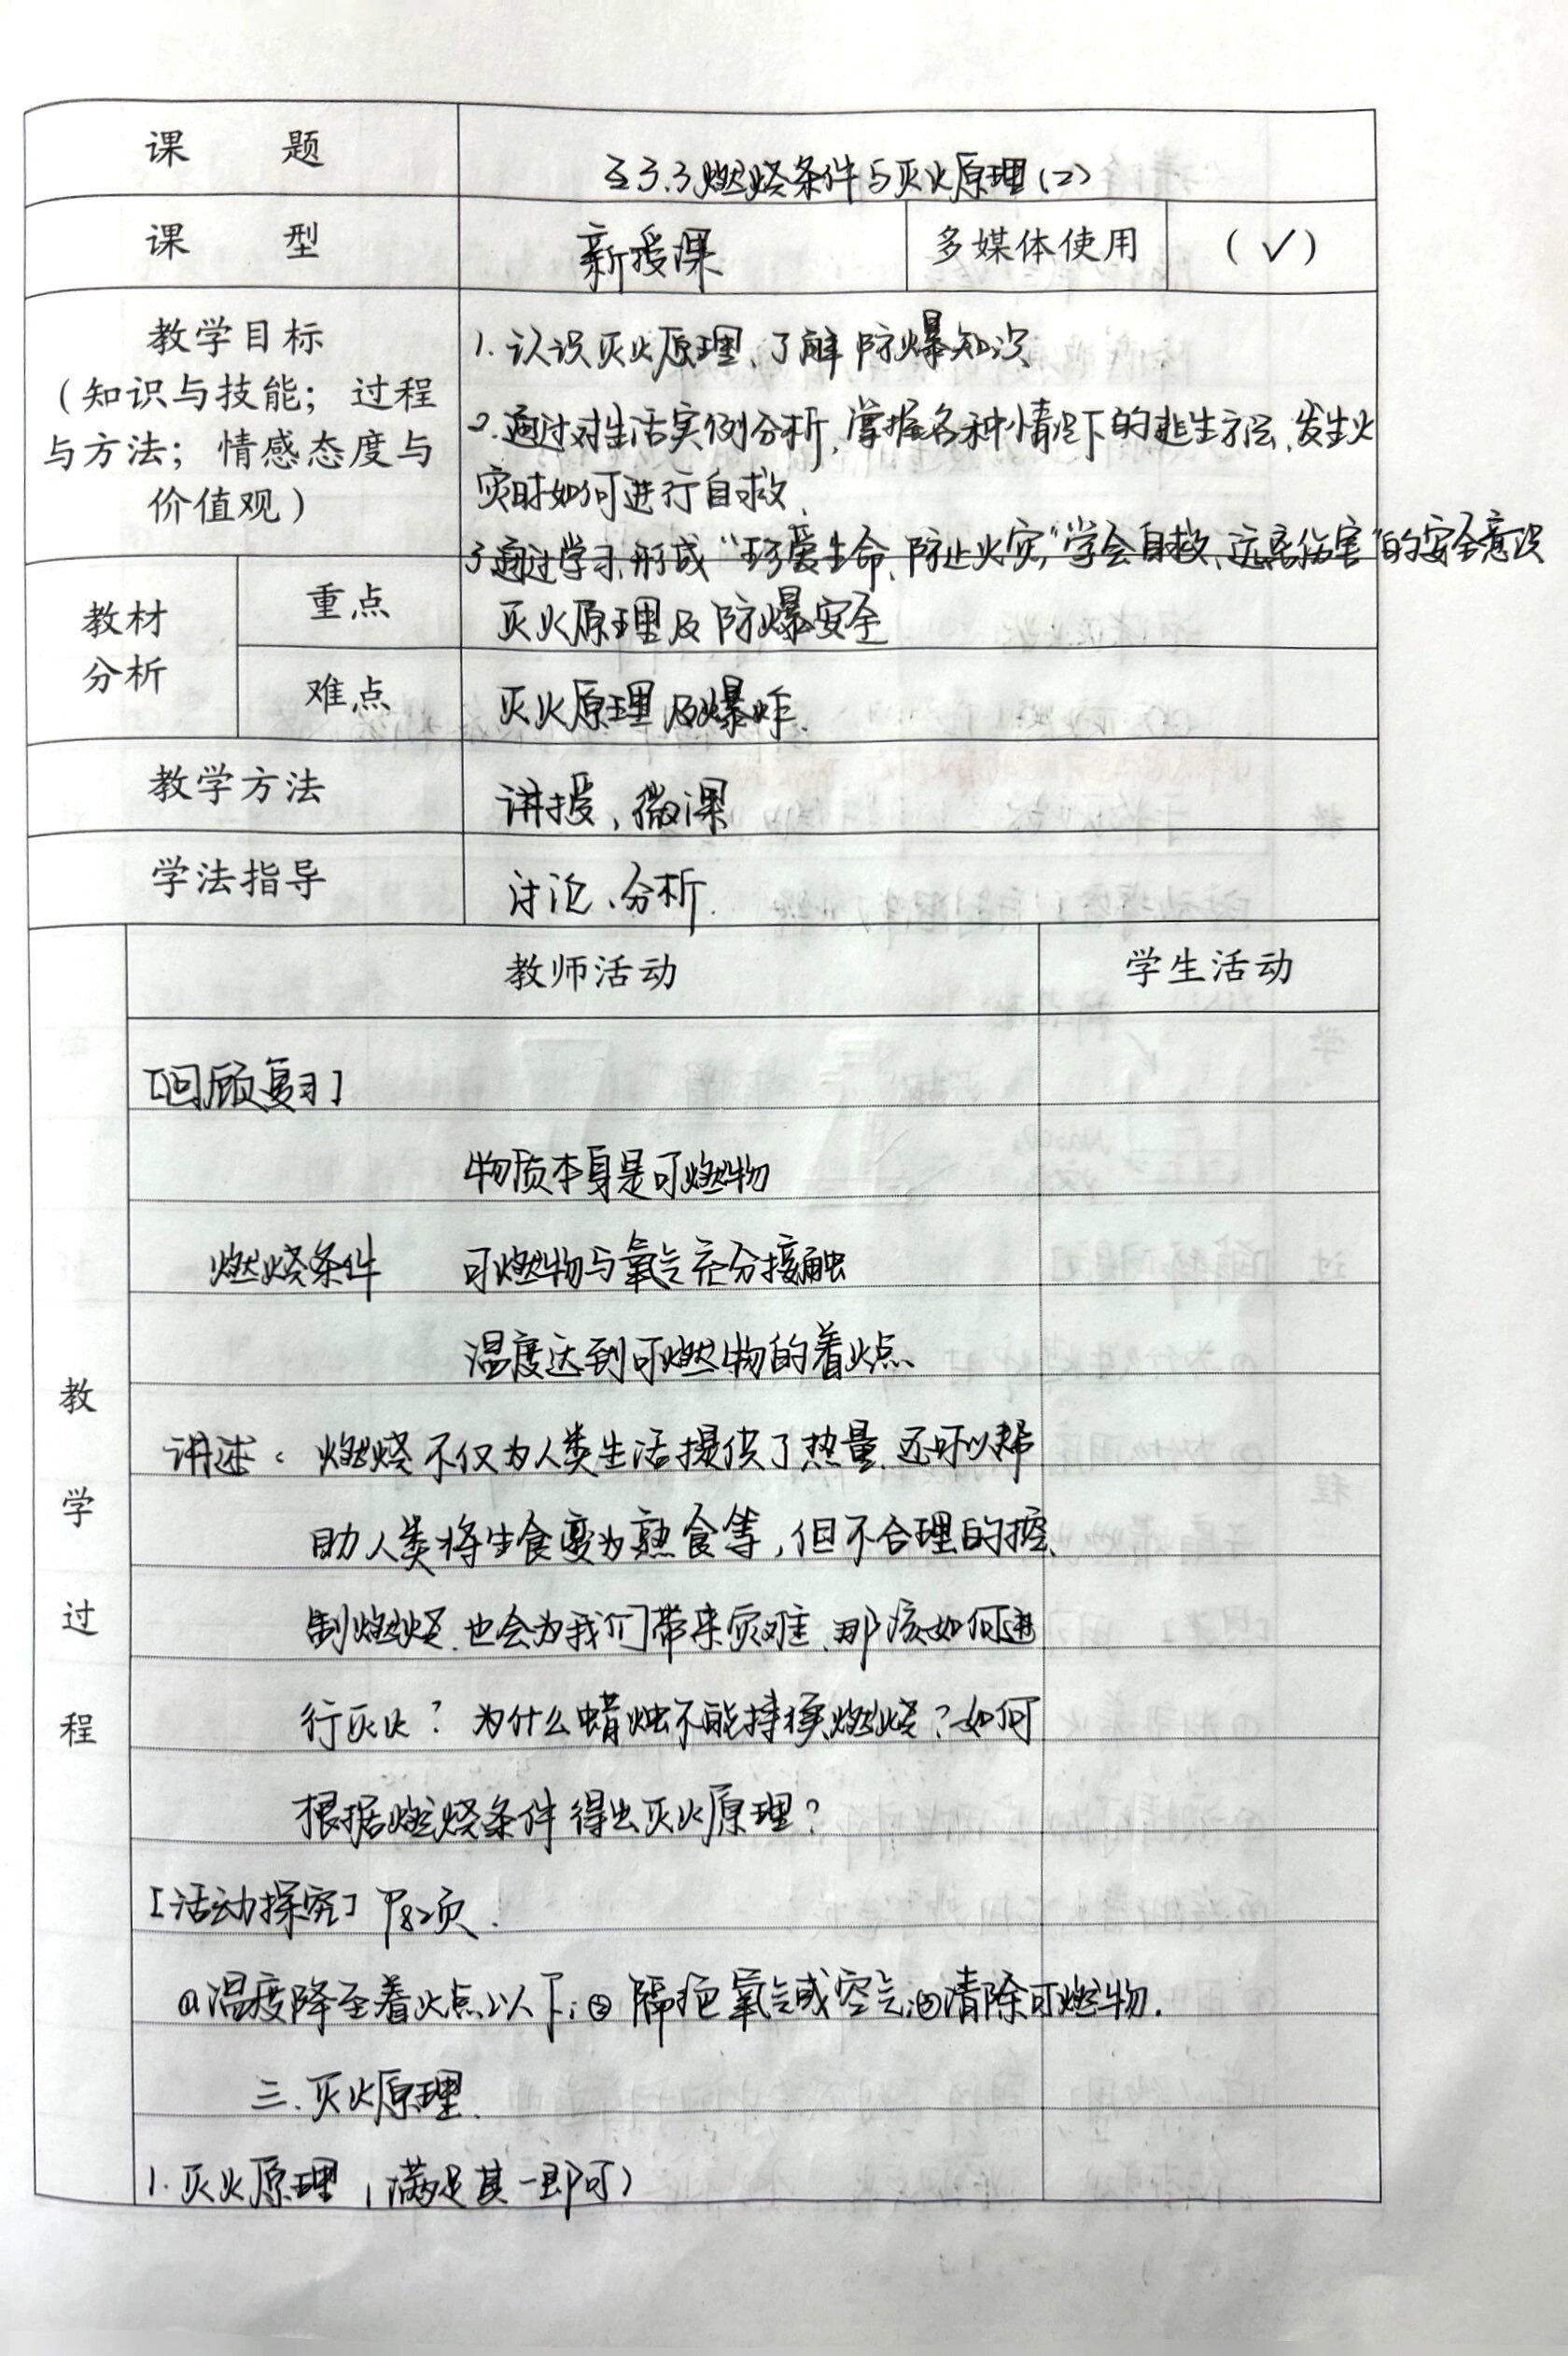 课 题 §3.3燃烧条件与灭火原理(2)
课 型 新授课 多媒体使用 (√)
教学目标
(知识与技能; 过程
与方法; 情感态度与
价值观)
1.认识灭火原理、了解防爆知识
2.通过对生活实例分析,掌握各种情况下的逃生方法、发生火
灾时如何进行自救、
3.通过学习,形成“珍爱生命、防止火灾,”学会自救、远离伤害”的安全意识
教材
分析
重点 灭火原理及防爆安全
难点 灭火原理及爆炸.
教学方法 讲授,微课
学法指导 讨论、分析.
教师活动 学生活动
教学过程
[回顾复习]
物质本身是可燃物
燃烧条件 可燃物与氧气充分接触
温度达到可燃物的着火点、
讲述: 燃烧不仅为人类生活提供了热量,还可以帮
助人类将生食变为熟食等,但不合理的控
制燃烧,也会为我们带来灾难、那该如何进
行灭火? 为什么蜡烛不能持续燃烧?如何
根据燃烧条件得出灭火原理?
[活动探究] P82页.
①温度降至着火点以下;② 隔绝氧气或空气;③清除可燃物.
三.灭火原理.
1.灭火原理(满足其一即可)